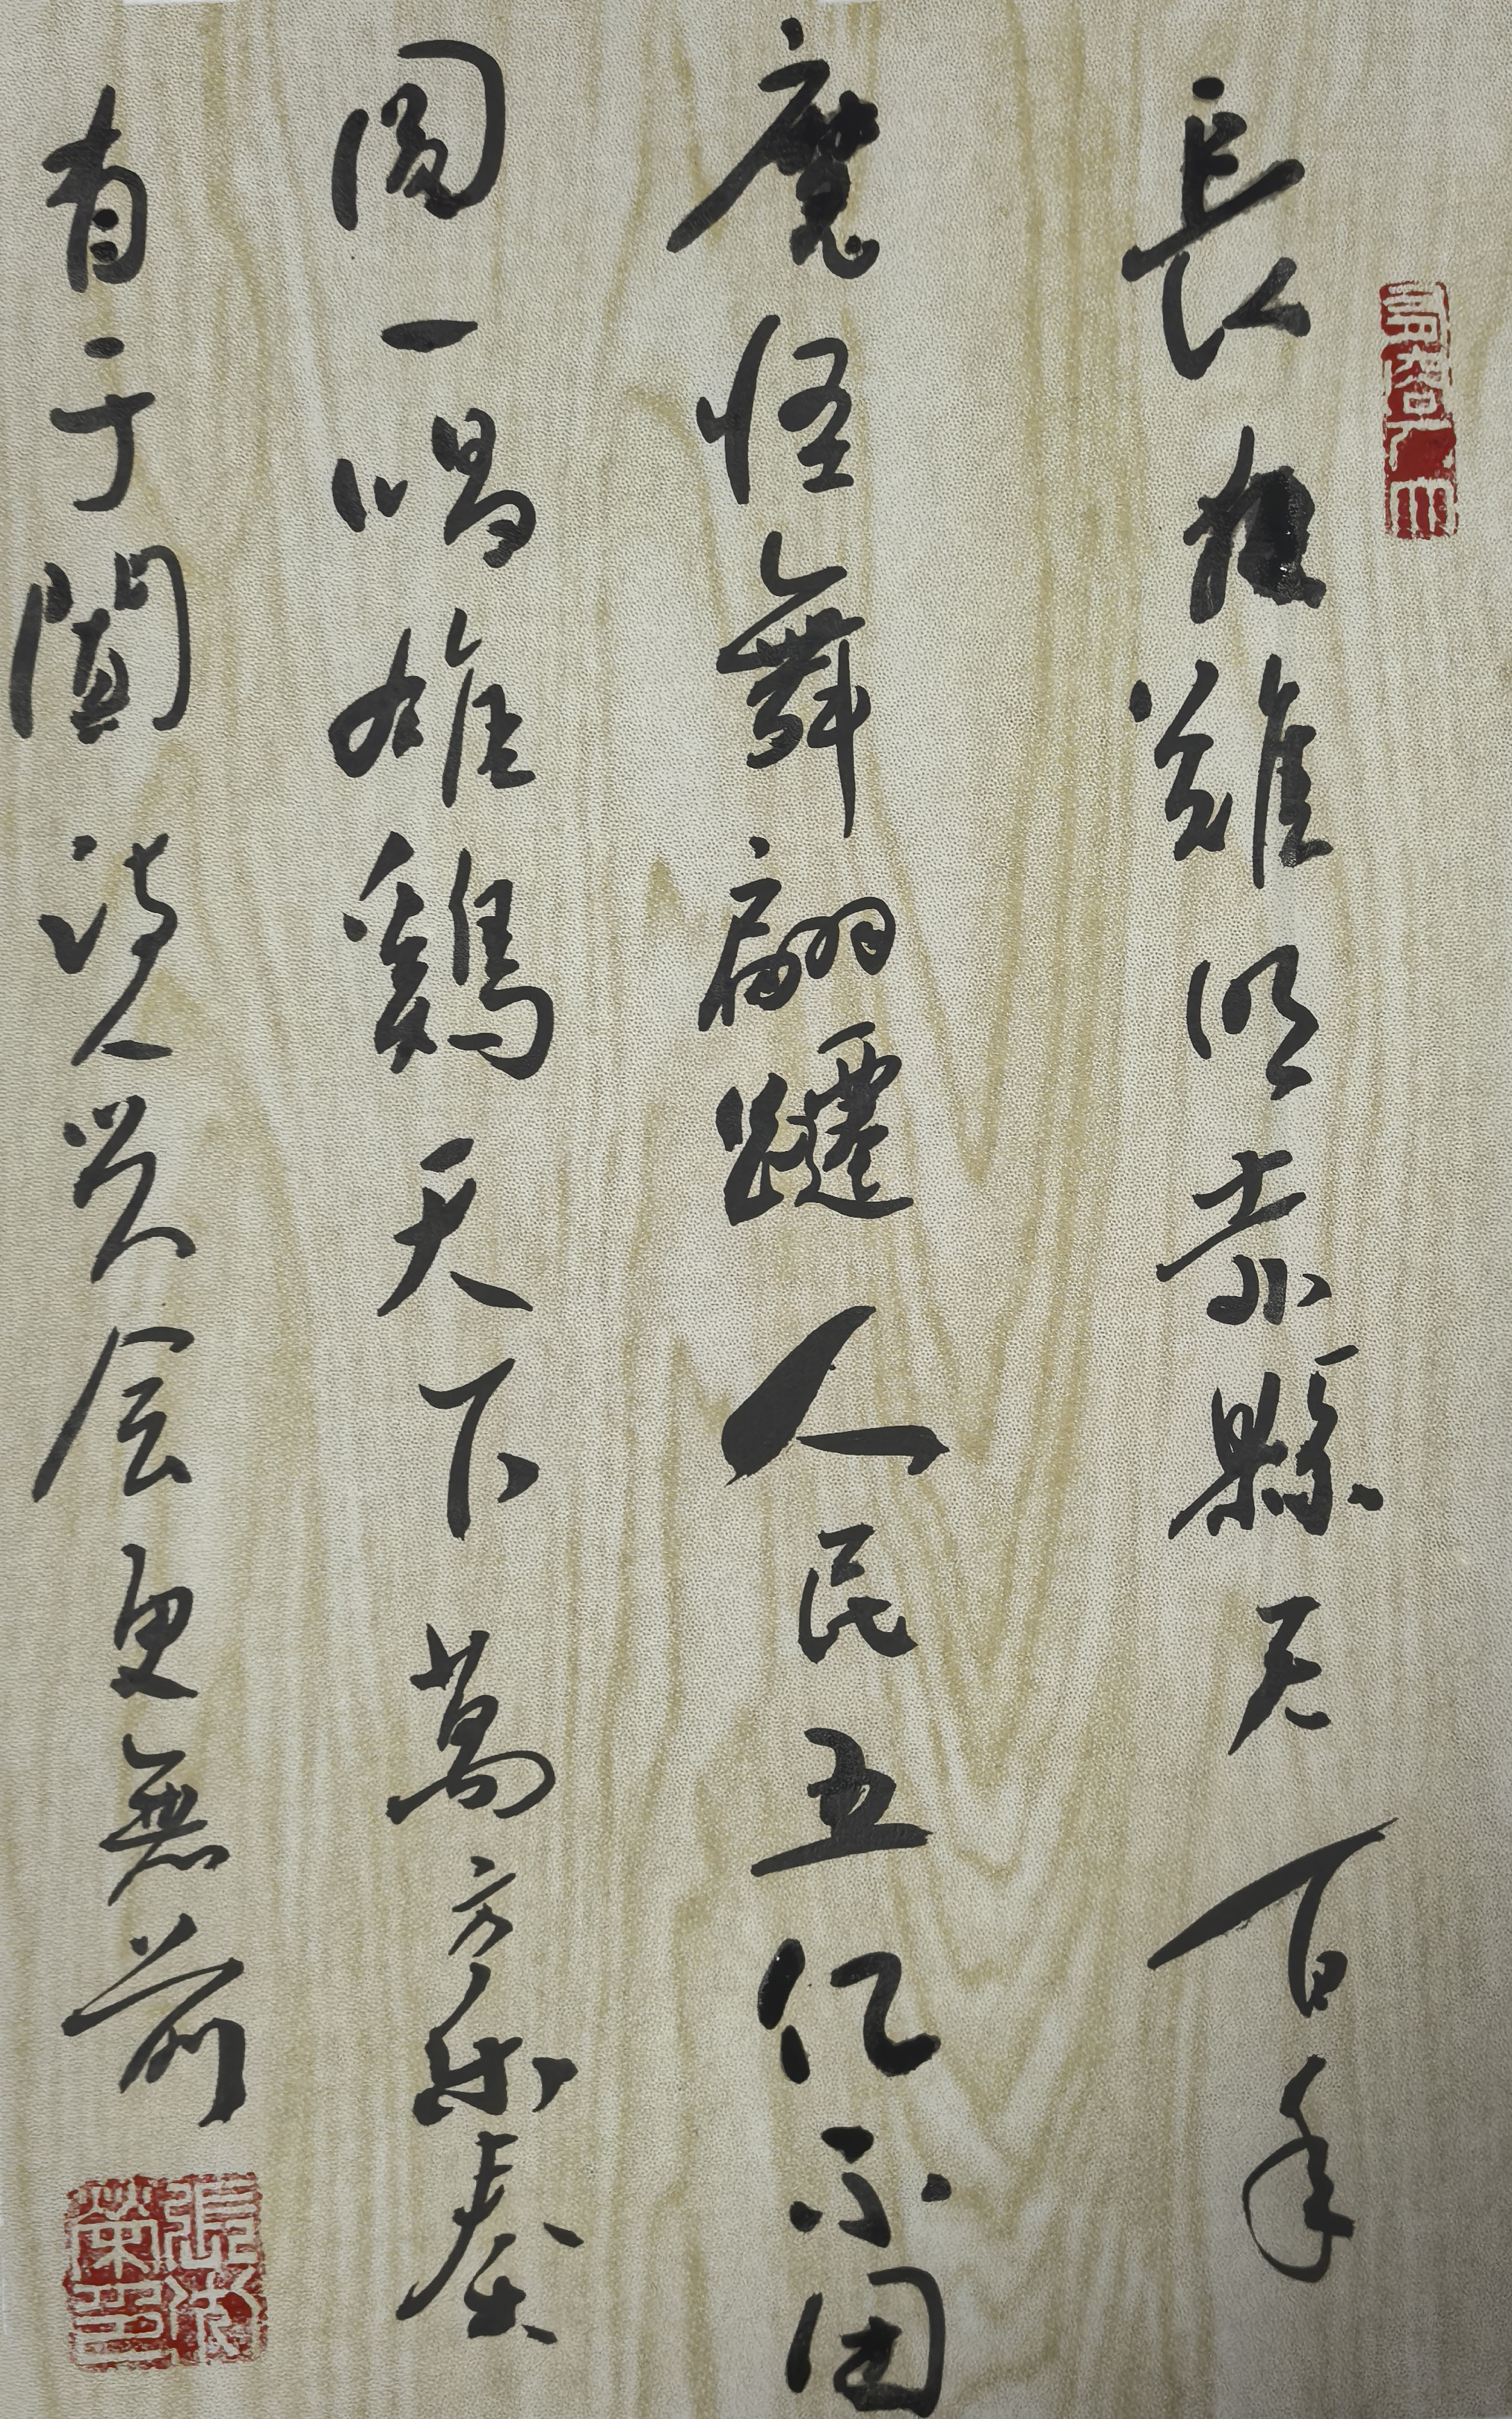 長夜難明赤縣天百年
魔怪舞翩躚人民五亿不团
圓一唱雄鷄天下萬方乐奏
有于闐诗人兴会更無前